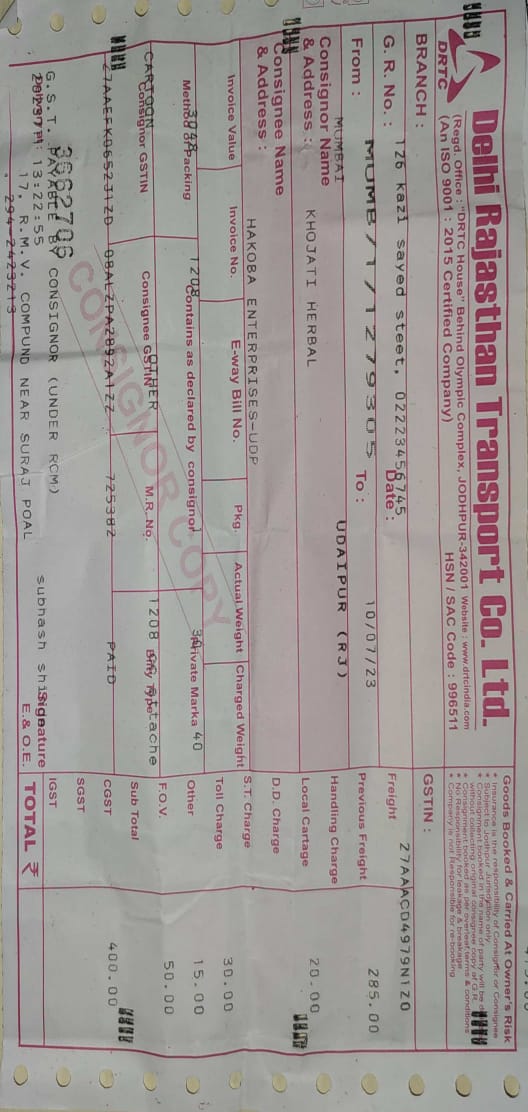 Delhi Rajasthan Transport Co. Ltd.
(Regd. Office : "DRTC House" Behind Olympic Complex, JODHPUR-342001 Website : www.drtcindia.com
DRTC
(An ISO 9001 : 2015 Certified Company)
HSN / SAC Code : 996511
BRANCH :
126 kazi sayed steet, 02223456745
G. R. No. :
MUMB/1/1279305
Date :
10/07/23
From :
MUMBAI
To :
UDAIPUR (RJ)
Consignor Name
& Address :
KHOJATI HERBAL
Consignee Name
& Address :
HAKOBA ENTERPRISES-UDP
Invoice Value
Invoice No.
E-way Bill No.
Pkg.
Actual Weight
Charged Weight
3048
1208
1
30
40
Method of Packing
Contains as declared by consignor
Private Marka
CARTOON
OTHER
1208
attache
Consignor GSTIN
Consignee GSTIN
M.R. No.
27AAEFK0652J1ZD
08ALZPA2892A1ZZ
725382
PAID
CONSIGNOR COPY
3662706
G.S.T. PAYABLE BY CONSIGNOR (UNDER RCM)
13:22:55
17, R.M.V. COMPUND NEAR SURAJ POAL
294-2423213
subhash
Signature
E.& O.E.
Goods Booked & Carried At Owner's Risk
* Insurance is the responsibility of Consignor or Consignee
* Subject to Jodhpur Jurisdiction only.
* Consignment booked in the name of party will be
without collecting original consignee copy of G.R.
* Consignment booked as per overleaf terms & conditions
* No Responsibility for leakage & breakage
* Company is not Responsible for re-booking
GSTIN :
27AAACD4979N1Z0
Freight
285.00
Previous Freight
Handling Charge
20.00
Local Cartage
D.D. Charge
S.T. Charge
Toll Charge
30.00
Other
15.00
F.O.V.
50.00
Sub Total
400.00
CGST
SGST
IGST
TOTAL ₹